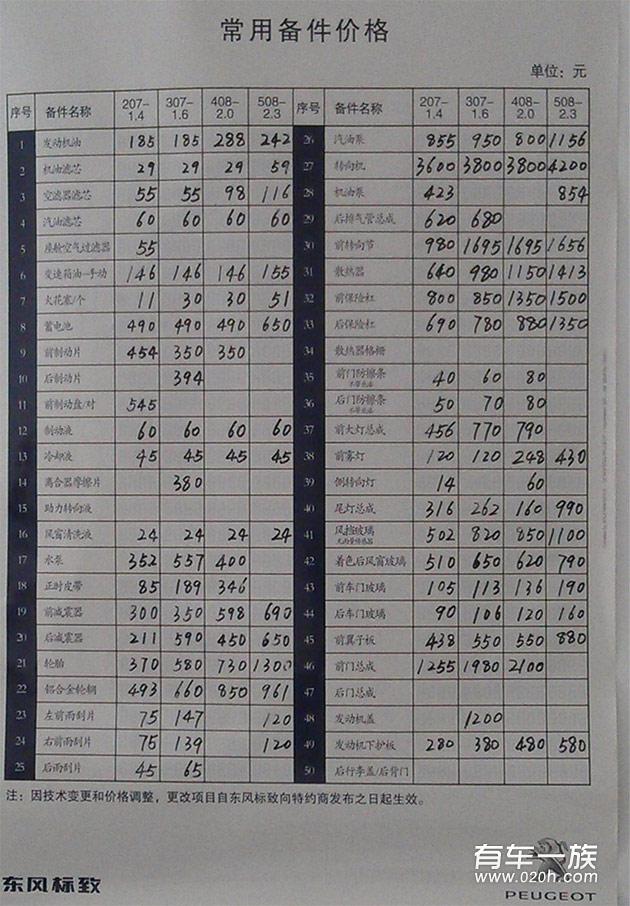 常用备件价格
单位：元
序号 备件名称 207-1.4 307-1.6 408-2.0 508-2.3 序号 备件名称 207-1.4 307-1.6 408-2.0 508-2.3
1 发动机油 185 185 288 242 26 汽油泵 855 950 800 1156
2 机油滤芯 29 29 29 59 27 转向机 3600 3800 3800 4200
3 空滤器滤芯 55 55 98 116 28 机油泵 423 854
4 汽油滤芯 60 60 60 60 29 后排气管总成 620 680
5 座舱空气过滤器 55 30 前转向节 980 1695 1695 1656
6 变速箱油-手动 146 146 146 155 31 散热器 640 980 1150 1413
7 火花塞/个 11 30 30 51 32 前保险杠 800 850 1350 1500
8 蓄电池 490 490 490 650 33 后保险杠 690 780 880 1350
9 前制动片 454 350 350 34 散热器格栅
10 后制动片 394 35 前门防擦条 40 60 80
11 前制动盘/对 545 36 后门防擦条 50 70 80
12 制动液 60 60 60 60 37 前大灯总成 456 770 790
13 冷却液 45 45 45 45 38 前雾灯 120 120 248 430
14 离合器摩擦片 380 39 侧转向灯 14 60
15 助力转向液 40 尾灯总成 316 262 160 990
16 风窗清洗液 24 24 24 24 41 风挡玻璃 502 820 850 1100
17 水泵 352 557 400 42 着色后风窗玻璃 510 650 620 790
18 正时皮带 85 189 346 43 前车门玻璃 105 113 136 190
19 前减震器 300 350 598 690 44 后车门玻璃 90 106 120 160
20 后减震器 211 590 450 650 45 前翼子板 438 550 550 880
21 轮胎 370 580 730 1300 46 前门总成 1255 1980 2100
22 铝合金轮辋 493 660 850 961 47 后门总成
23 左前雨刮片 75 147 120 48 发动机盖 1200
24 右前雨刮片 75 139 120 49 发动机下护板 280 380 480 580
25 后雨刮片 45 65 50 后行李盖/后背门
注：因技术变更和价格调整，更改项目自东风标致向特约商发布之日起生效。
东风标致
有车一族
www.020h.com
PEUGEOT